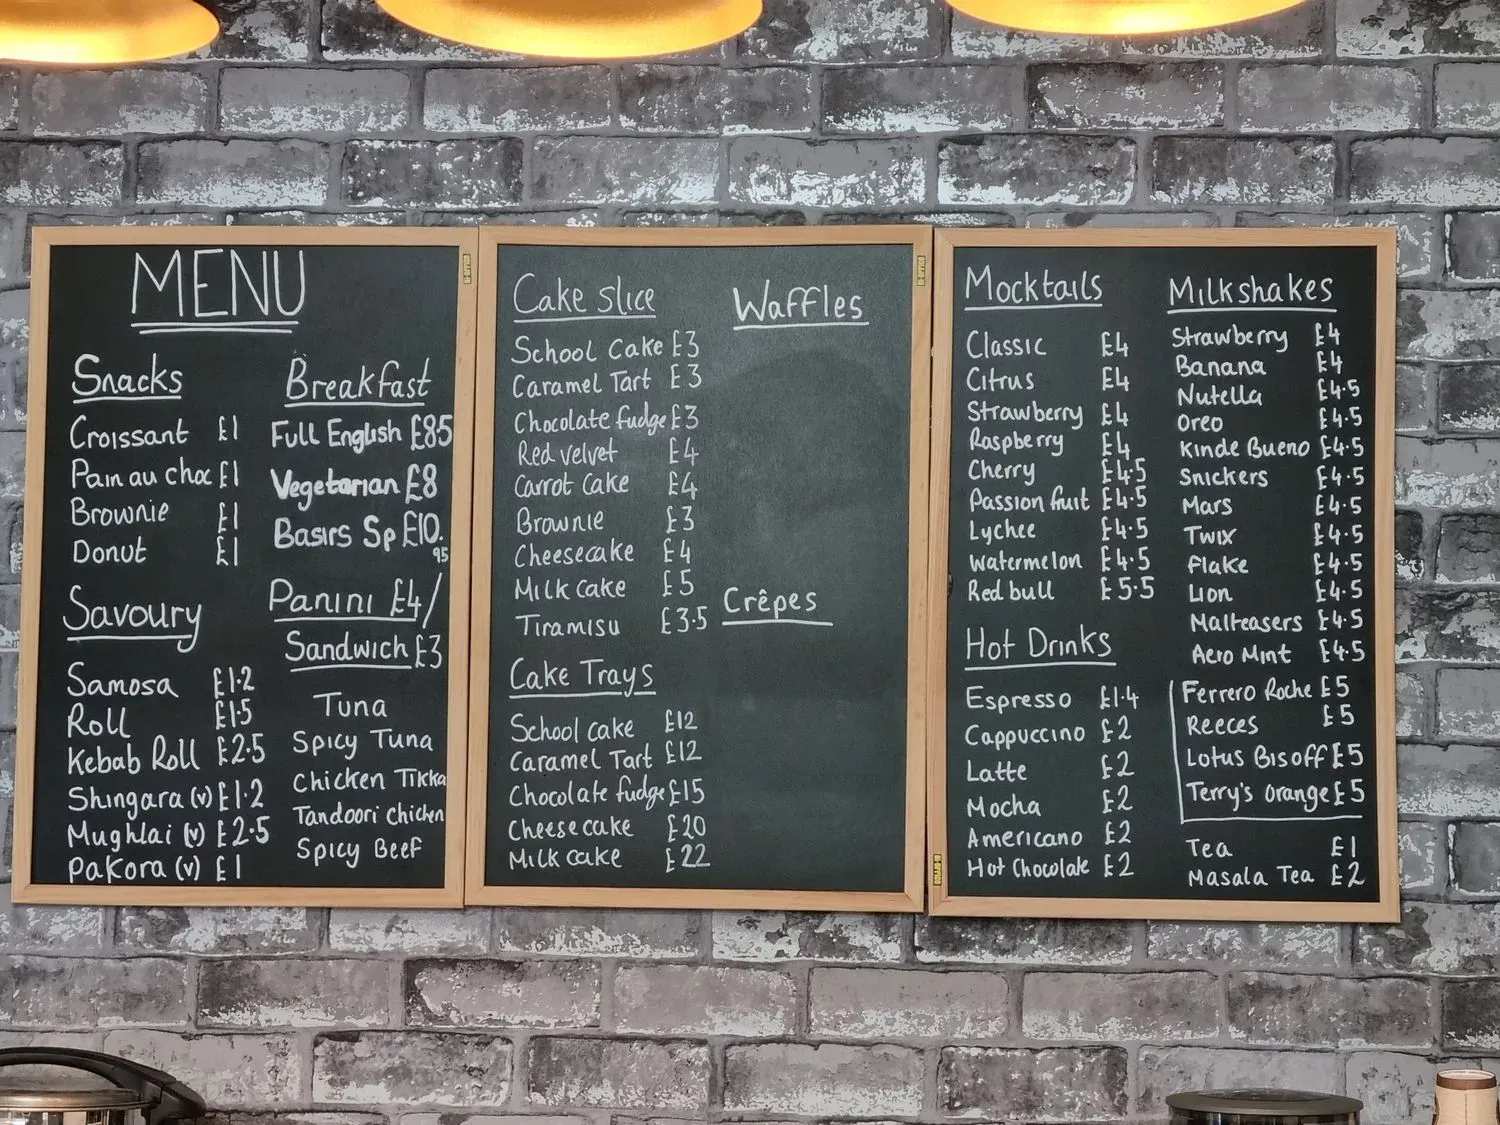 MENU
Snacks
Croissant £1
Pain au choc £1
Brownie £1
Donut £1
Savoury
Samosa £1.2
Roll £1.5
Kebab Roll £2.5
Shingara (v) £1.2
Mughlai (v) £2.5
Pakora (v) £1
Breakfast
Full English £8.5
Vegetarian £8
Basirs Sp £10.
95
Panini £4/
Sandwich £3
Tuna
Spicy Tuna
Chicken Tikka
Tandoori chicken
Spicy Beef
Cake Slice
School Cake £3
Caramel Tart £3
Chocolate fudge £3
Red velvet £4
Carrot Cake £4
Brownie £3
Cheesecake £4
Milk cake £5
Tiramisu £3.5
Cake Trays
School cake £12
Caramel Tart £12
Chocolate fudge £15
Cheese cake £20
Milk cake £22
Waffles
Crêpes
Mocktails
Classic £4
Citrus £4
Strawberry £4
Raspberry £4
Cherry £4.5
Passion fruit £4.5
Lychee £4.5
Watermelon £4.5
Red bull £5.5
Hot Drinks
Espresso £1.4
Cappuccino £2
Latte £2
Mocha £2
Americano £2
Hot Chocolate £2
Milkshakes
Strawberry £4
Banana £4
Nutella £4.5
Oreo £4.5
Kinde Bueno £4.5
Snickers £4.5
Mars £4.5
Twix £4.5
Flake £4.5
Lion £4.5
Malteasers £4.5
Aero Mint £4.5
Ferrero Roche £5
Reeces £5
Lotus Bisoff £5
Terry's Orange £5
Tea £1
Masala Tea £2